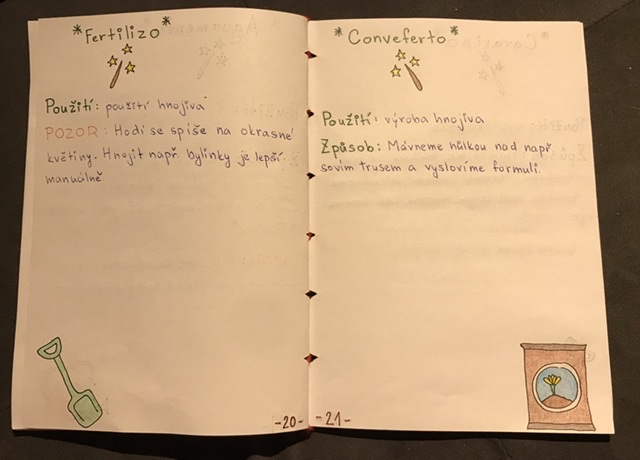 *Fertilizo*
Použití: použití hnojiva
POZOR: Hodí se spíše na okrasné
květiny. Hnojit např. bylinky je lepší
manuálně.
-20-
*Conveferto*
Použití: výroba hnojiva
Způsob: Mávneme hůlkou nad např.
sovím trusem a vyslovíme formuli.
-21-